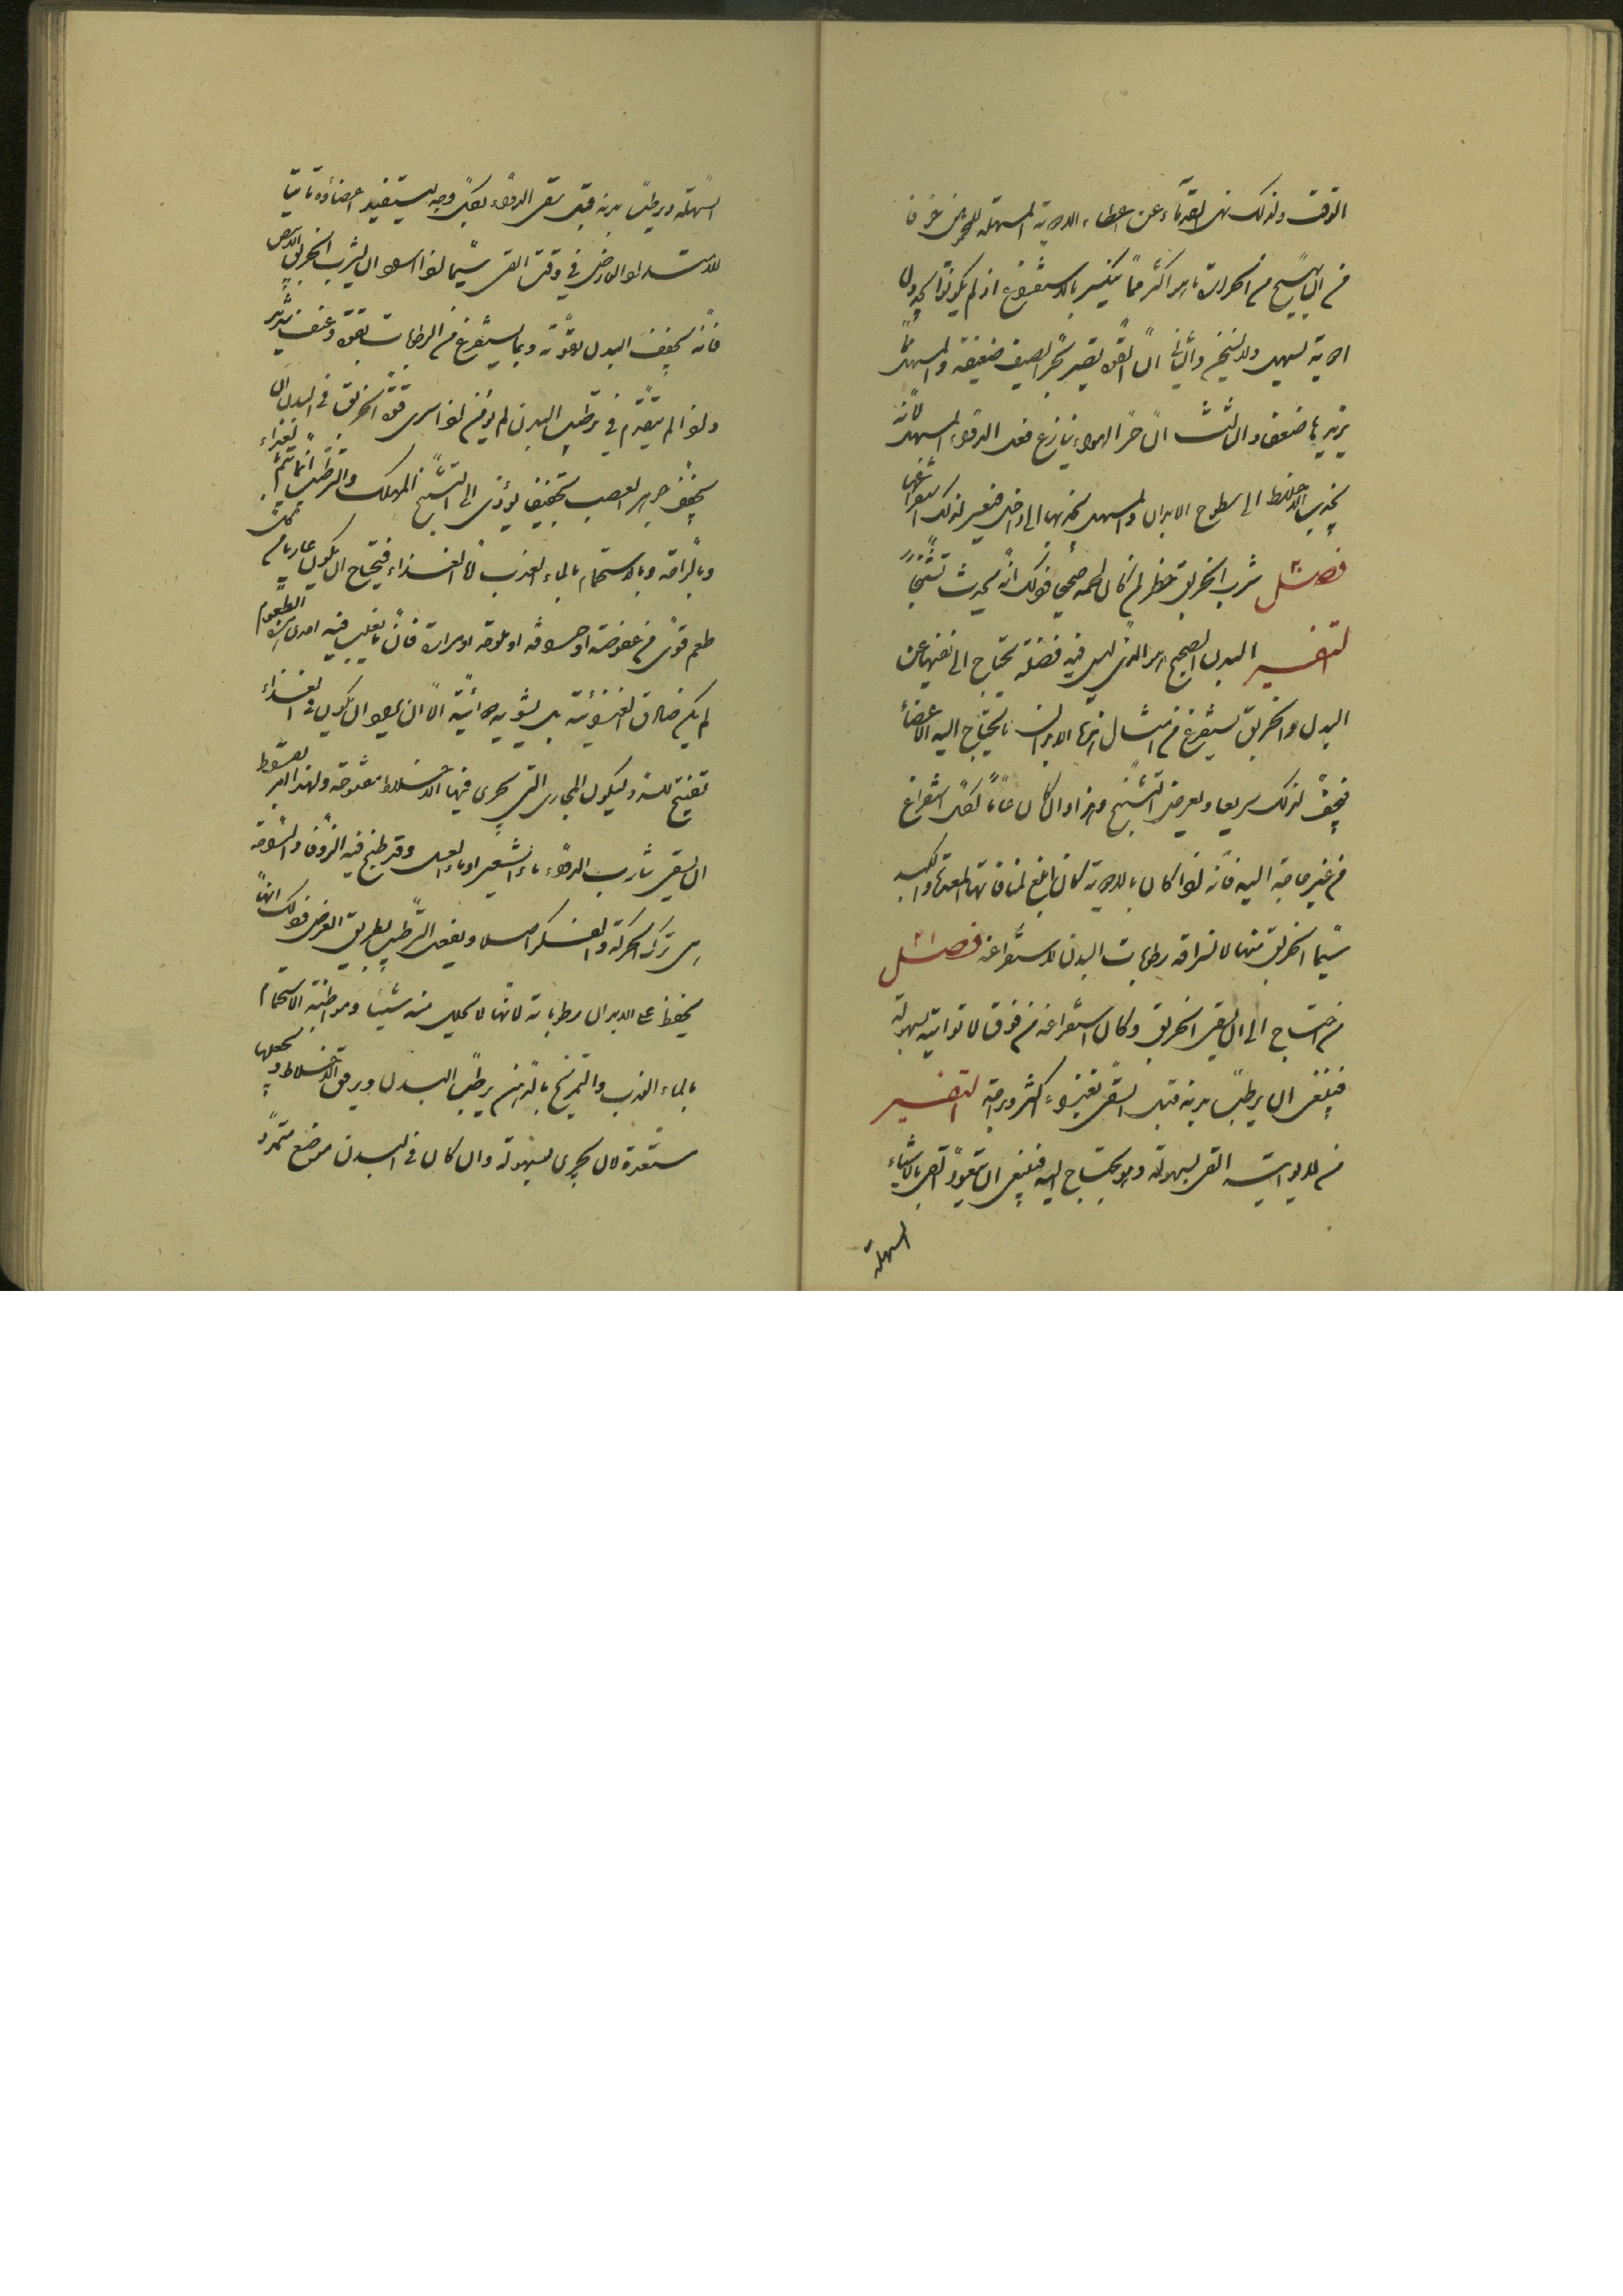 الوقت ولذلك نهى القدماء عن اعطاء الادوية المسهلة للمحمومين خوفا
من ان يهيج من الحرارة ما هو اكثر مما ينكسر بالاستفراغ اذ لم يكونوا يجدون
ادوية تسهل ولا تسخن والثاني ان القوة تصير بحر الصيف ضعيفة والمسهل
يزيدها ضعفا والثالث ان حر الهواء ينازع فعل الدواء المسهل لانه
يجذب الاخلاط الى سطوح الابدان والمسهل يجذبها الى داخل فيعسر لذلك استفراغها
فصل شرب الخربق خطر لمن كان لحمه صحيحا وذلك انه يحدث تشنجا
التفسير البدن الصحيح هو الذي ليس فيه فضلة يحتاج الى نفيها عن
البدن والخربق يستفرغ من امثال هذه الابدان ما يحتاج اليه الاعضاء
فيجف لذلك سريعا ويعرض التشنج وهذا وان كان عاما لكل استفراغ
من غير حاجة اليه فانه اذا كان بالادوية كان ابلغ لمنافاتها المعدة والكبد
سيما الخربق منها لانتزاقه رطوبات البدن لاستفراغه فصل
من احتاج الى ان يسقى الخربق وكان استفراغه من فوق لا يواتيه بسهولة
فينبغي ان يرطب بدنه قبل السقي بغذاء اكثر وبراحة التفسير
من لا يواتيه القي بسهولة وهو يحتاج اليه فينبغي ان يتعود القي بالاشياء
السهلة
السهلة ويرطب بدنه قبل سقي الدواء بكل وجه ليستفيد اعضاؤه تاتيا
في وقت القي سيما اذا ان يشرب الخربق الابيض
فانه يجفف البدن بقوته وبما يستفرغ من الرطوبات بقوة وعنف شديد
واذا لم يتقدم في ترطيب البدن لم يؤمن اذا سرى قوة الخربق في البدن ان
يجفف جوهر العصب تجفيفا يؤدي الى التشنج المهلك والترطيب انما يتم بغذاء
وبالراحة وبالاستحمام بالماء العذب اما الغذاء فيحتاج ان يكون عاريا من كل
طعم قوي من عفوصة او حموضة او ملوحة او مرارة فان ما يغلب فيه احدى هذه الطعوم
لم يكن صادق الغذوية بل يشوبه دوائية الا ان يكون في الغذاء
تفتيح للسدد ليكون المجاري التي تجري فيها الاخلاط مفتوحة ولهذا امر بقراط
ان يسقى شارب الدواء ماء الشعير او ماء العسل وقد طبخ فيه الزوفا
ترك الحركة ويفعل الترطيب بطريق العرض وذلك انها
يحفظ على الابدان رطوباته لانها لا يحلل منه شيئا ومواظبة الاستحمام
بالماء العذب والتمريخ بالدهن يرطب البدن ويرقق الاخلاط ويجعلها
مستعدة لان يجري بسهولة وان كان في البدن موضع متمدد